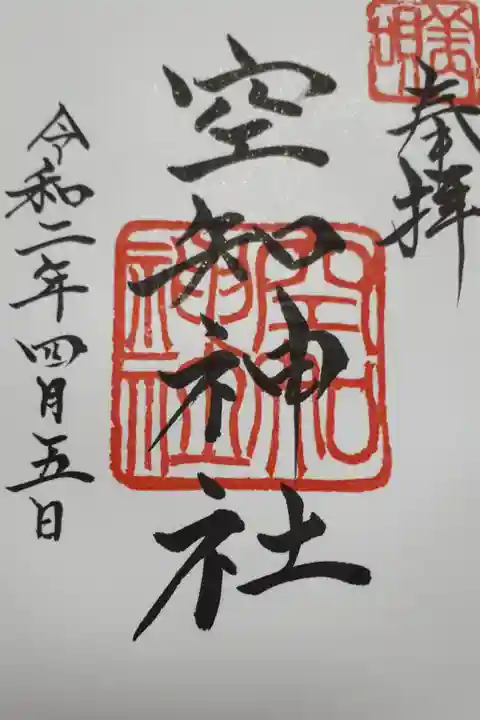 奉拝
美唄
空知神社
空知神社
令和二年四月五日